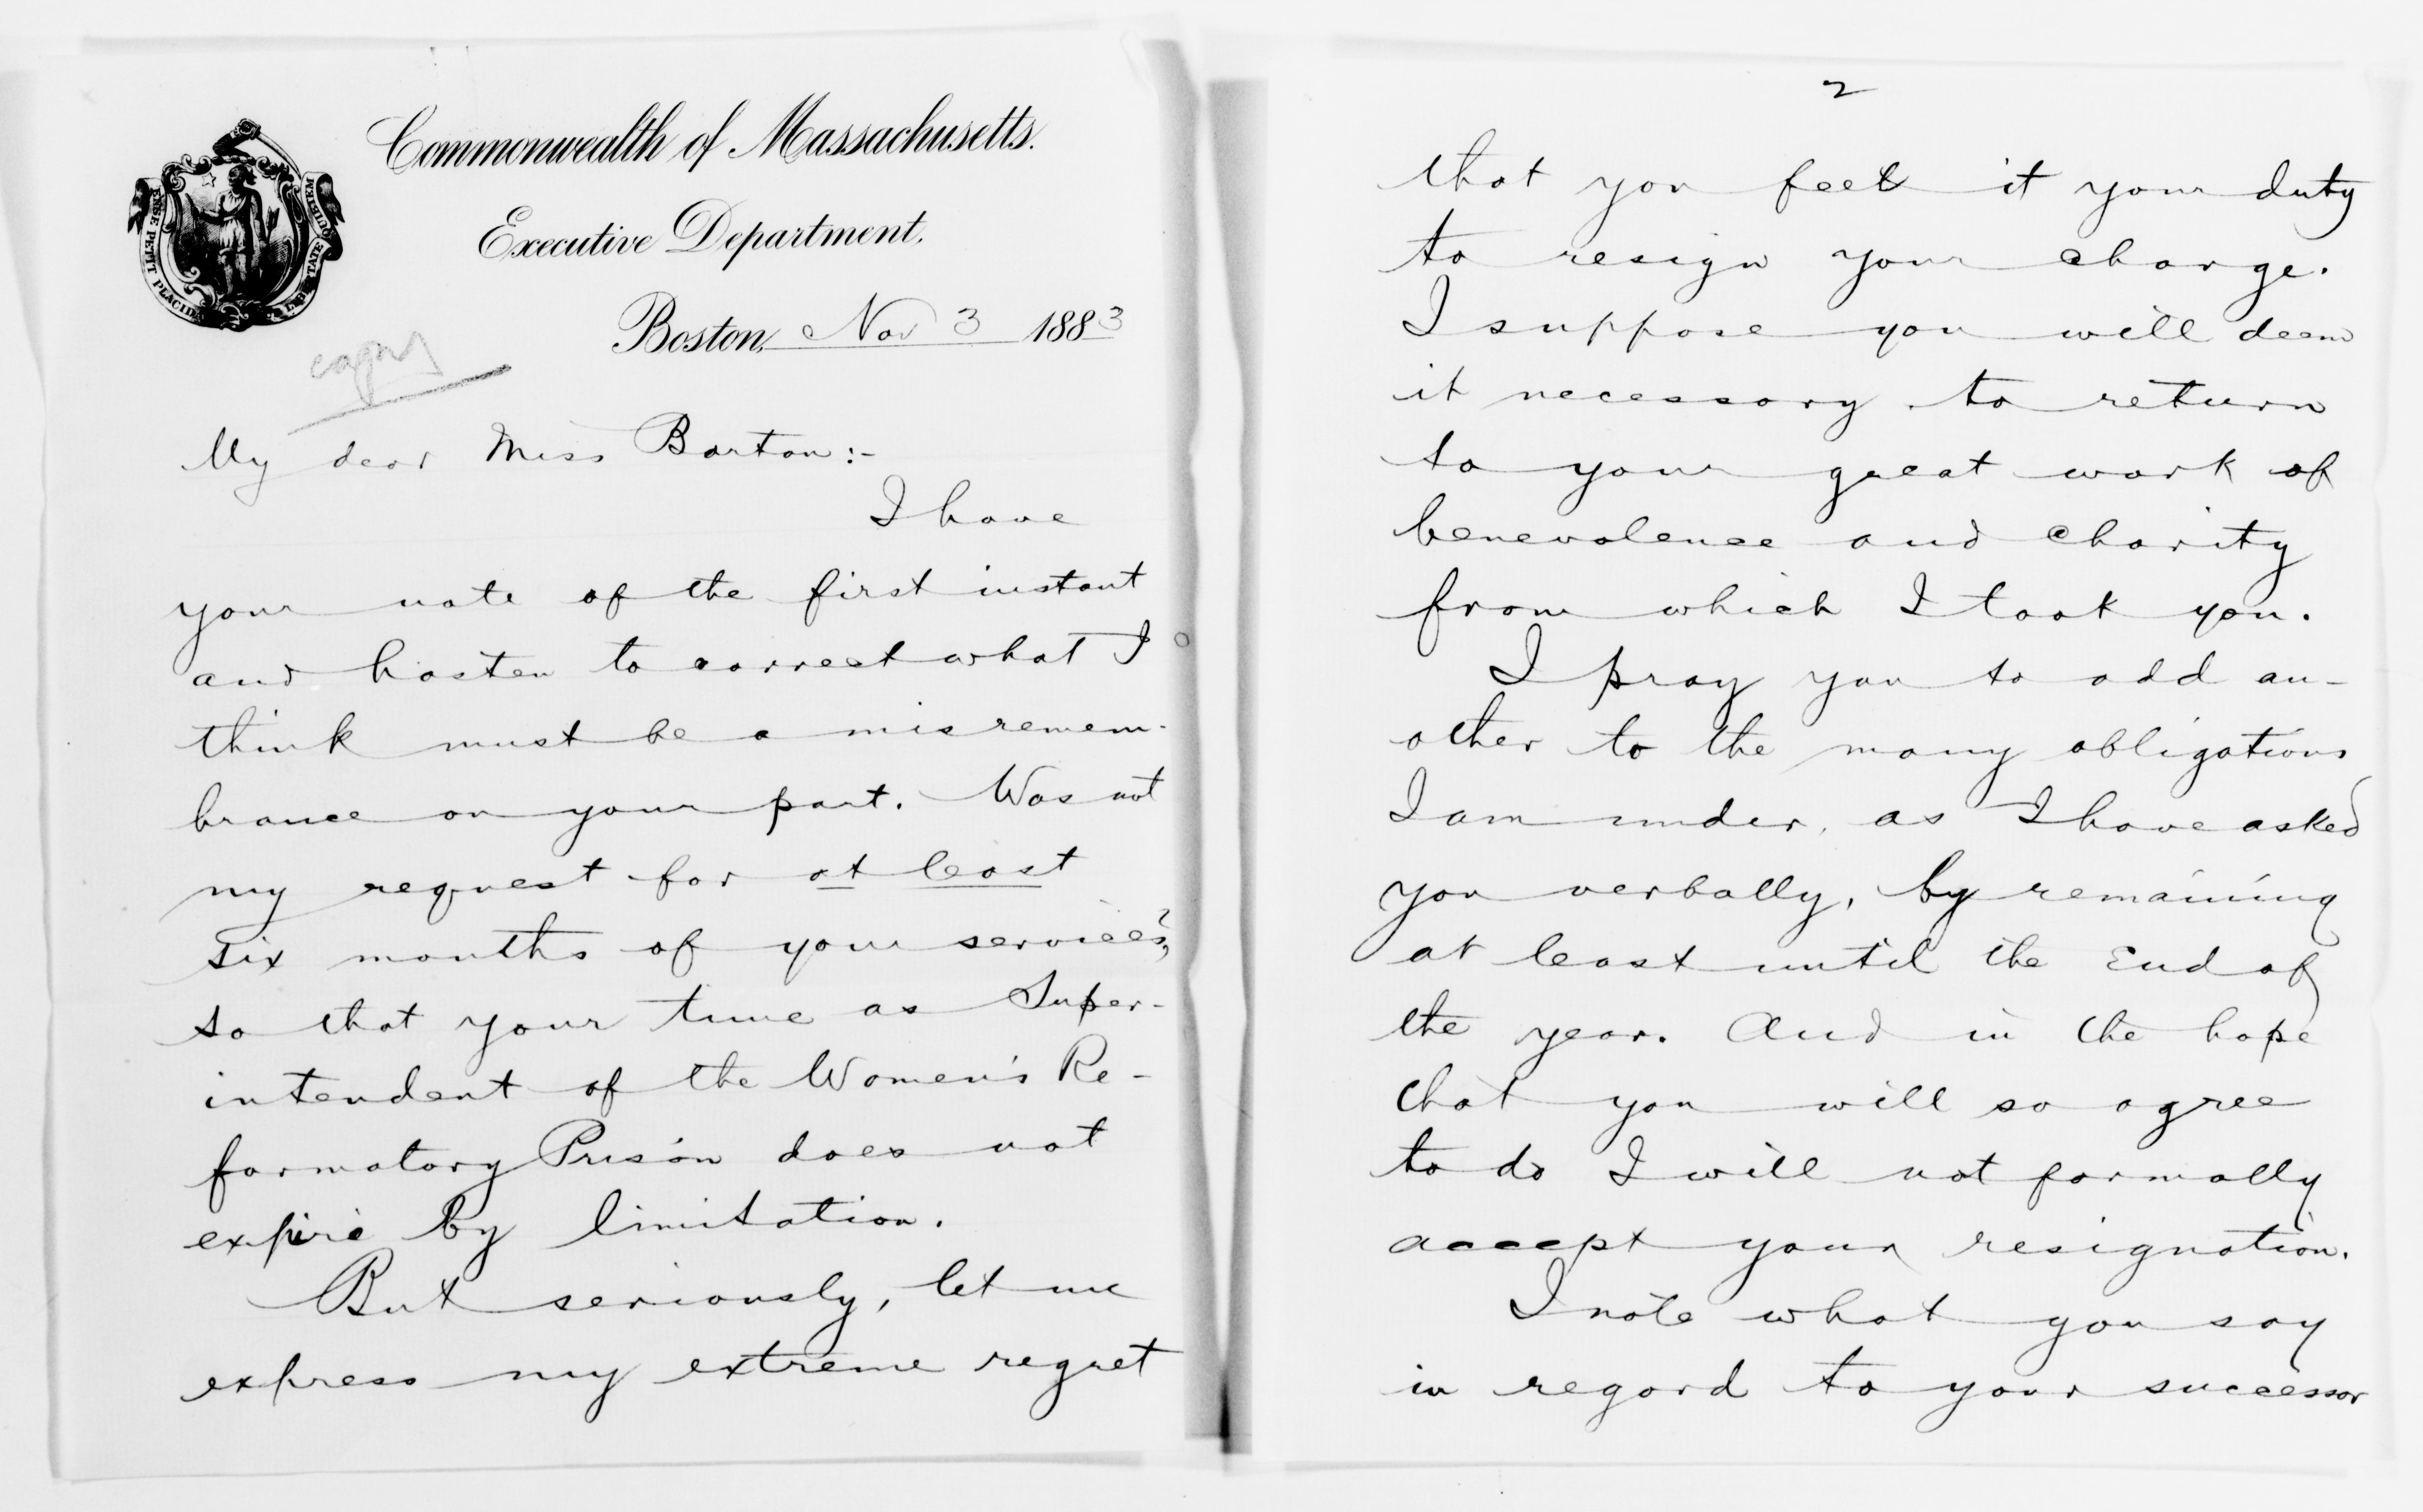 Commonwealth of Massachusetts.
Executive Department,
ENSE PETIT PLACIDAM
LIBERTATE QUIETEM
Boston, Nov 3 1883
copy
My dear Miss Barton:-
I have
your note of the first instant
and hasten to correct what I
think must be a misremem-
brance on your part. Was not
my request for at least
six months of your services?,
so that your time as Super-
intendent of the Women's Re-
formatory Prison does not
expire by limitation.
But seriously, let me
express my extreme regret
2
that you feel it your duty
to resign your charge.
I suppose you will deem
it necessary to return
to your great work of
benevolence and charity
from which I took you.
I pray you to add an-
other to the many obligations
I am under, as I have asked
you verbally, by remaining
at least until the End of
the year. And in the hope
that you will so agree
to do I will not formally
accept your resignation.
I note what you say
in regard to your successor